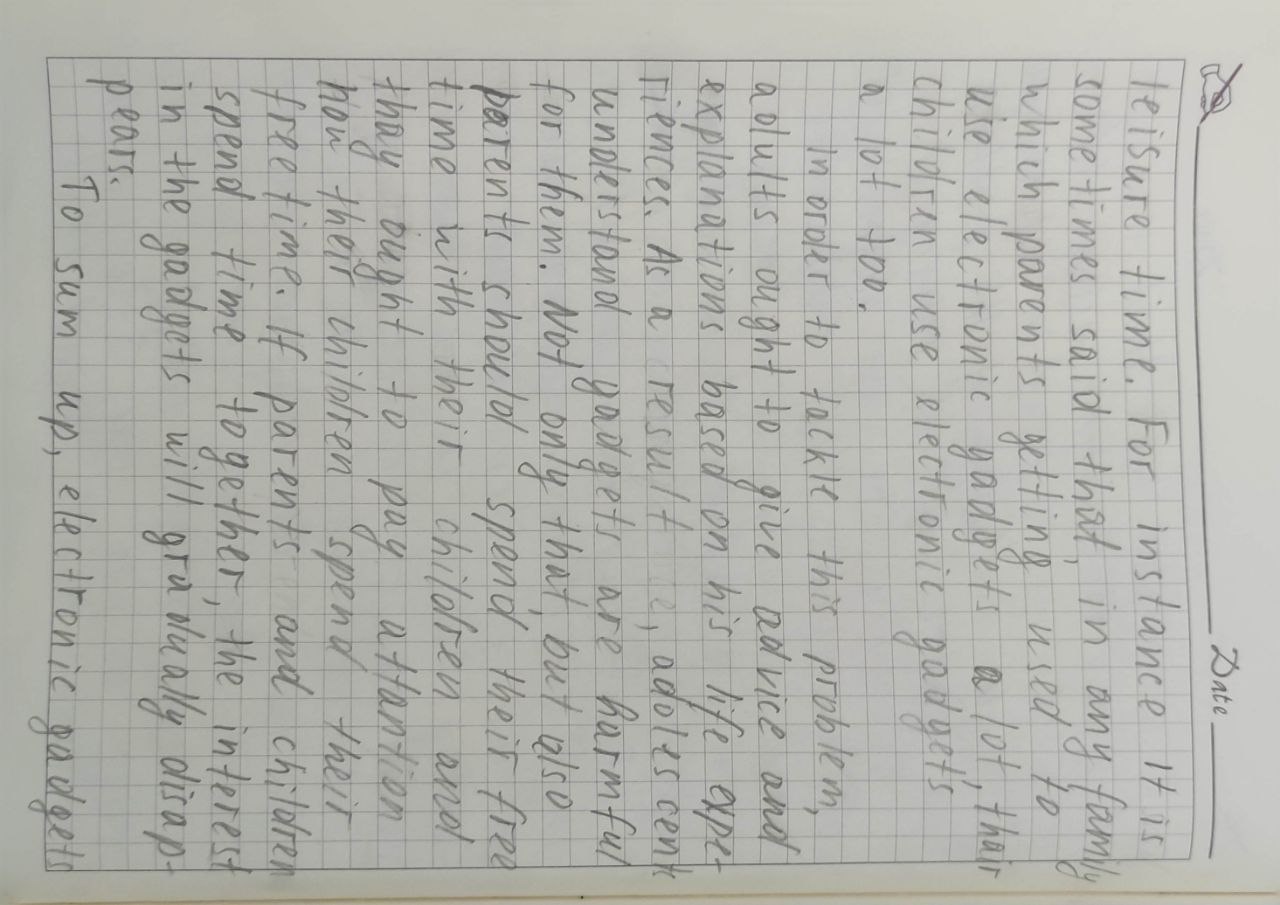 Date
leisure time. For instance it is
sometimes said that, in any family
which parents getting used to
use electronic gadgets a lot, thair
children use electronic gadgets
a lot too.
In order to tackle this problem,
adults ought to give advice and
explanations based on his life expe-
riences. As a result, adolescent
understand gadgets are harmful
for them. Not only that, but also
parents should spend their free
time with their children and
thay ought to pay attantion
how their children spend their
free time. If parents and children
spend time together, the interest
in the gadgets will gradually disap-
pears.
To sum up, electronic gadgets